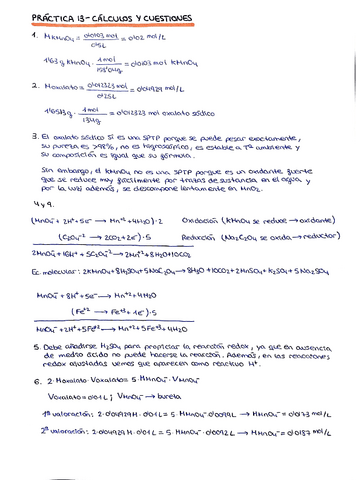 PRÁCTICA 13 - CÁLCULOS Y CUESTIONES
1. MKMnO4 = 0'0103 mol / 0'5L = 0'02 mol/L
1'63 g KMnO4 · 1 mol / 158'04g = 0'0103 mol KMnO4
2. Moxalato = 0'012323 mol / 0'25L = 0'04929 mol/L
1'6513 g · 1 mol / 134g = 0'012323 mol oxalato sódico
3. El oxalato sódico sí es una SPTP porque se puede pesar exactamente,
su pureza es >98%, no es higroscópico, es estable a Tª ambiente y
su composición es igual que su fórmula.
Sin embargo, el KMnO4 no es una SPTP porque es un oxidante fuerte
que se reduce muy fácilmente por trazas de sustancia en el agua y
por la luz; además, se descompone lentamente en MnO2.
4 y 9.
(MnO4- + 8H+ + 5e- → Mn+2 + 4H2O) · 2 Oxidación (KMnO4 se reduce → oxidante)
(C2O4-2 → 2CO2 + 2e-) · 5 Reducción (Na2C2O4 se oxida → reductor)
2MnO4- + 16H+ + 5C2O4-2 → 2Mn+2 + 8H2O + 10CO2
Ec. molecular: 2KMnO4 + 8H2SO4 + 5Na2C2O4 → 8H2O + 10CO2 + 2MnSO4 + K2SO4 + 5Na2SO4
MnO4- + 8H+ + 5e- → Mn+2 + 4H2O
(Fe+2 → Fe+3 + 1e-) · 5
MnO4- + 8H+ + 5Fe+2 → Mn+2 + 5Fe+3 + 4H2O
5. Debe añadirse H2SO4 para propiciar la reacción redox, ya que en ausencia
de medio ácido no puede hacerse la reacción. Además, en las reacciones
redox ajustadas vemos que aparecen como reactivo H+.
6. 2 · Moxalato · Voxalato = 5 · MMnO4- · VMnO4-
Voxalato = 0'01L ; VMnO4- → bureta
1ª valoración: 2 · 0'04929M · 0'01L = 5 · MMnO4- · → MMnO4- = 0'0173 mol/L
2ª valoración: 2 · 0'04929M · 0'01L = 5 · MMnO4- · → MMnO4- = 0'0187 mol/L